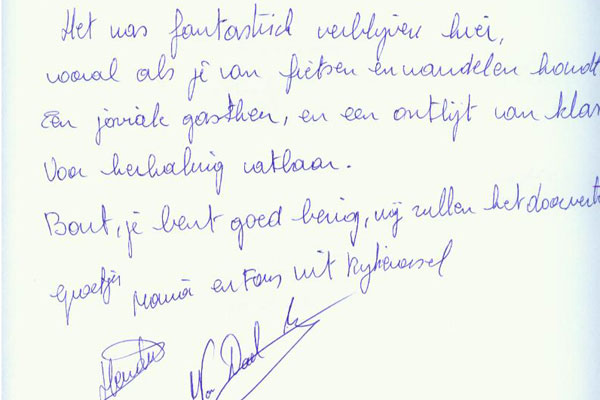 Het was fantastisch verblijven hier,
vooral als je van fietsen en wandelen houdt
Een joviale gastheer, en een ontbijt van klas
Voor herhaling vatbaar.
Bart, je bent goed bezig, wij zullen het doorvert
groetjes Maria en Fons uit Rijkevorsel
Van Dael